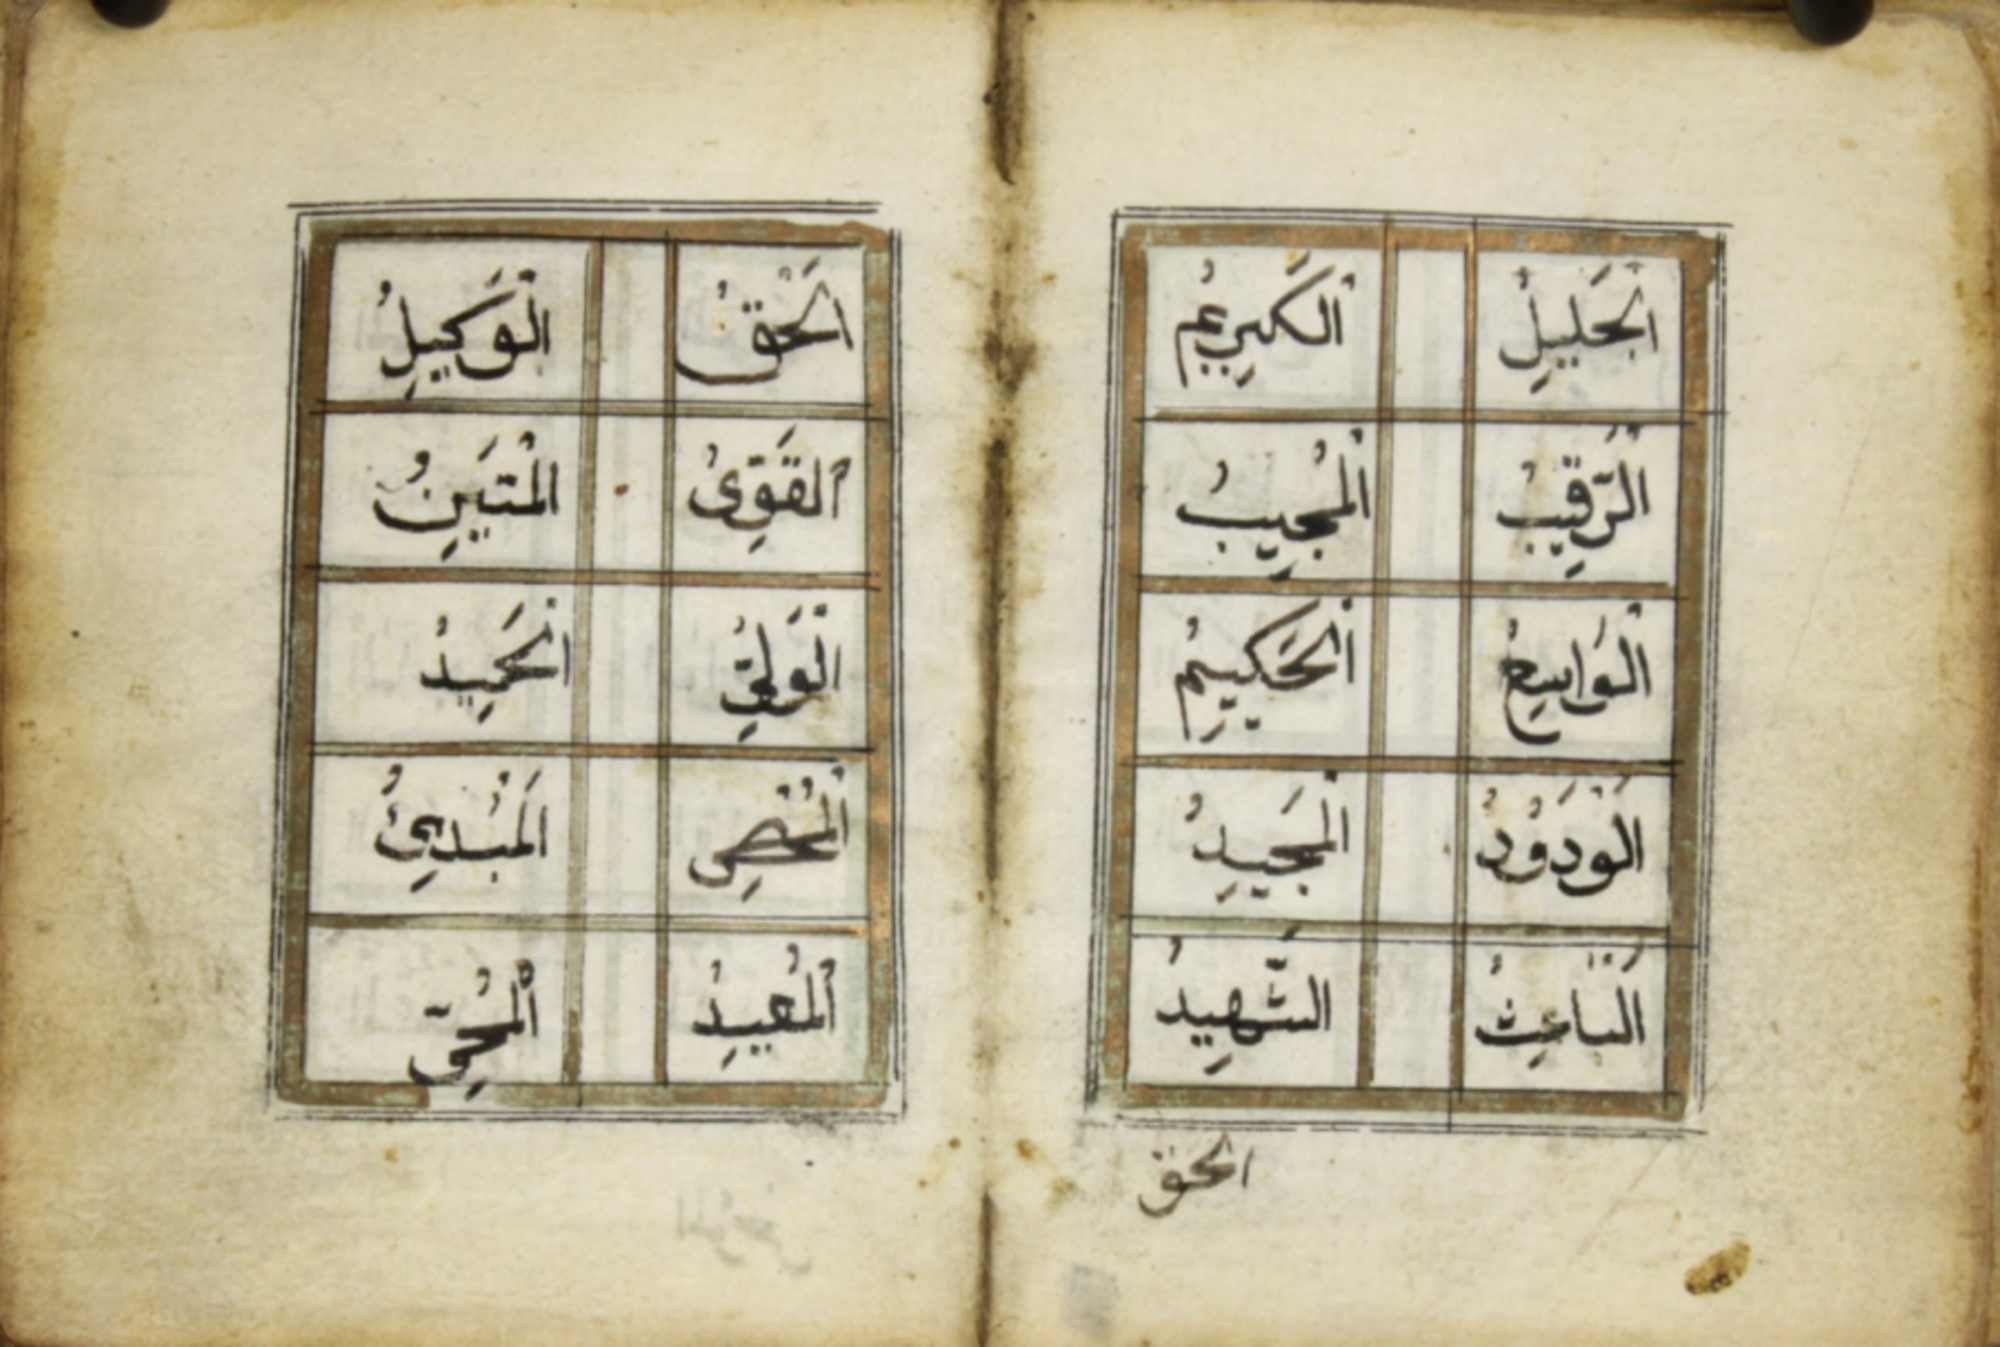 اَلْجَلِيلُ اَلْكَرِيمُ
اَلرَّقِيبُ اَلْمُجِيبُ
اَلْوَاسِعُ اَلْحَكِيمُ
اَلْوَدُودُ اَلْمَجِيدُ
اَلْبَاعِثُ اَلشَّهِيدُ
الحق
اَلْحَقُّ اَلْوَكِيلُ
اَلْقَوِىُّ اَلْمَتِينُ
اَلْوَلِىُّ اَلْحَمِيدُ
اَلْمُحْصِى اَلْمُبْدِئُ
اَلْمُعِيدُ اَلْمُحْيِى